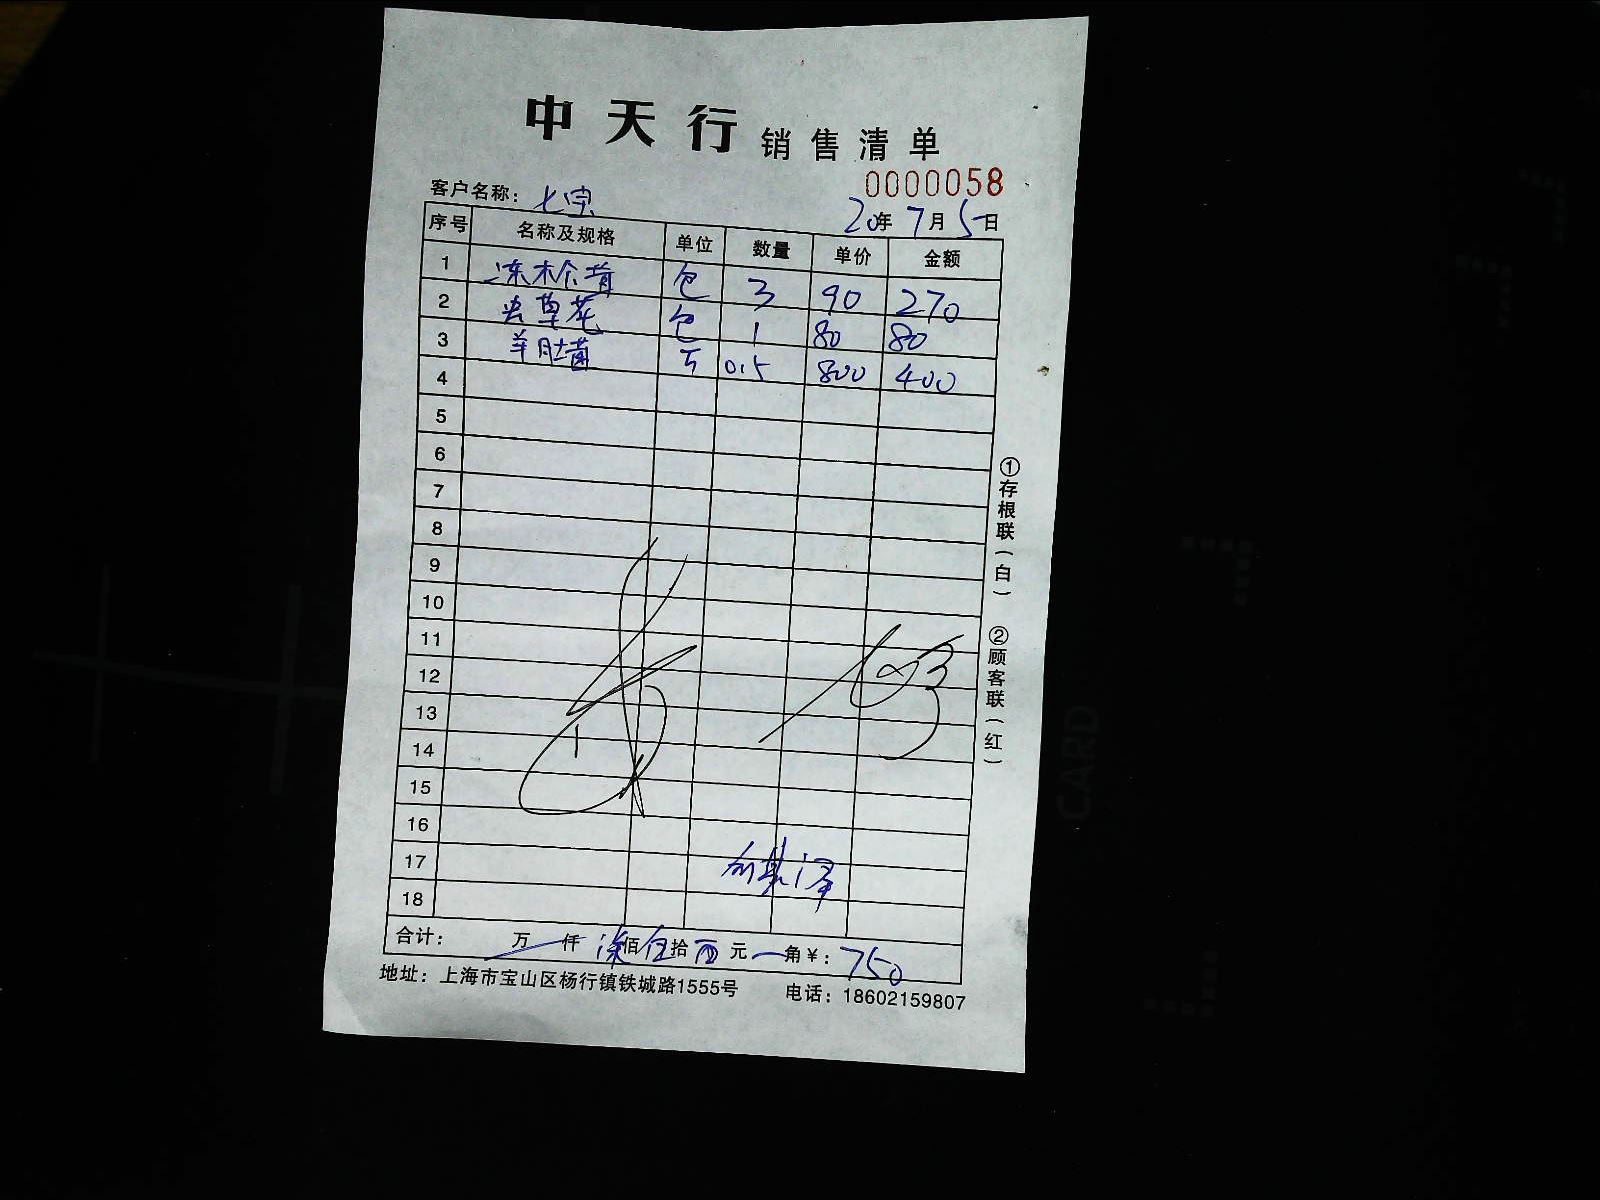 中天行 销售清单
0000058
客户名称：七宝
20年7月5日
序号 名称及规格 单位 数量 单价 金额
1 冻木个苗 包 3 90 270
2 虫草花 包 1 80 80
3 羊肚菌 斤 0.5 800 400
4
5
6
7
8
9
10
11
12
13
14
15
16
17
18
合计： 万 仟 柒佰伍拾 元 角 ¥：750
地址：上海市宝山区杨行镇铁城路1555号 电话：18602159807
①存根联（白） ②顾客联（红）
CARD